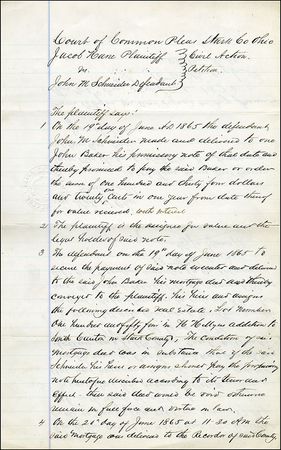 Court of Common Pleas Stark Co Ohio
Jacob Kane Plaintiff Civil Action
vs. Petition
John M Schneider Defendant
The plaintiff says:
On the 19th day of June AD 1865 the defendant,
John M Schneider made and delivered to one
John Baker his promissory note of that date and
thereby promised to pay the said Baker or order
the sum of one hundred and thirty four dollars
and twenty cents in one year from date thereof
for value received, with interest
2 The plaintiff is the assignee for value and the
legal holder of said note.
3 The defendant on the 19th day of June 1865 to
secure the payment of said note executed and delivered
to the said John Baker his mortgage deed and thereby
conveyed to the plaintiff, his heirs and assigns
the following described real Estate: Lot Number
One hundred and fifty four in addition to
South Canton in Stark County, The condition of said
Mortgage deed was in substance that if the said
Schneider his heirs or assigns should pay the promissory
note according to its tenor and
effect then said deed would be void otherwise
remain in full force and virtue in law.
4 On the 20th day of June 1865 at 11-30 A.M. the
said Mortgage was delivered to the Recorder of said County